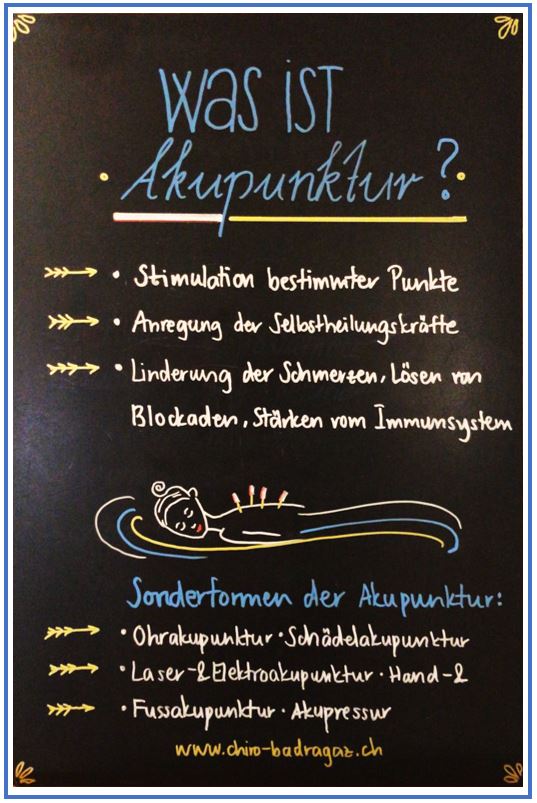 Was ist
Akupunktur?
• Stimulation bestimmter Punkte
• Anregung der Selbstheilungskräfte
• Linderung der Schmerzen, Lösen von
Blockaden, Stärken vom Immunsystem
Sonderformen der Akupunktur:
• Ohrakupunktur • Schädelakupunktur
• Laser-&Elektroakupunktur • Hand-&
• Fussakupunktur • Akupressur
www.chiro-badragaz.ch